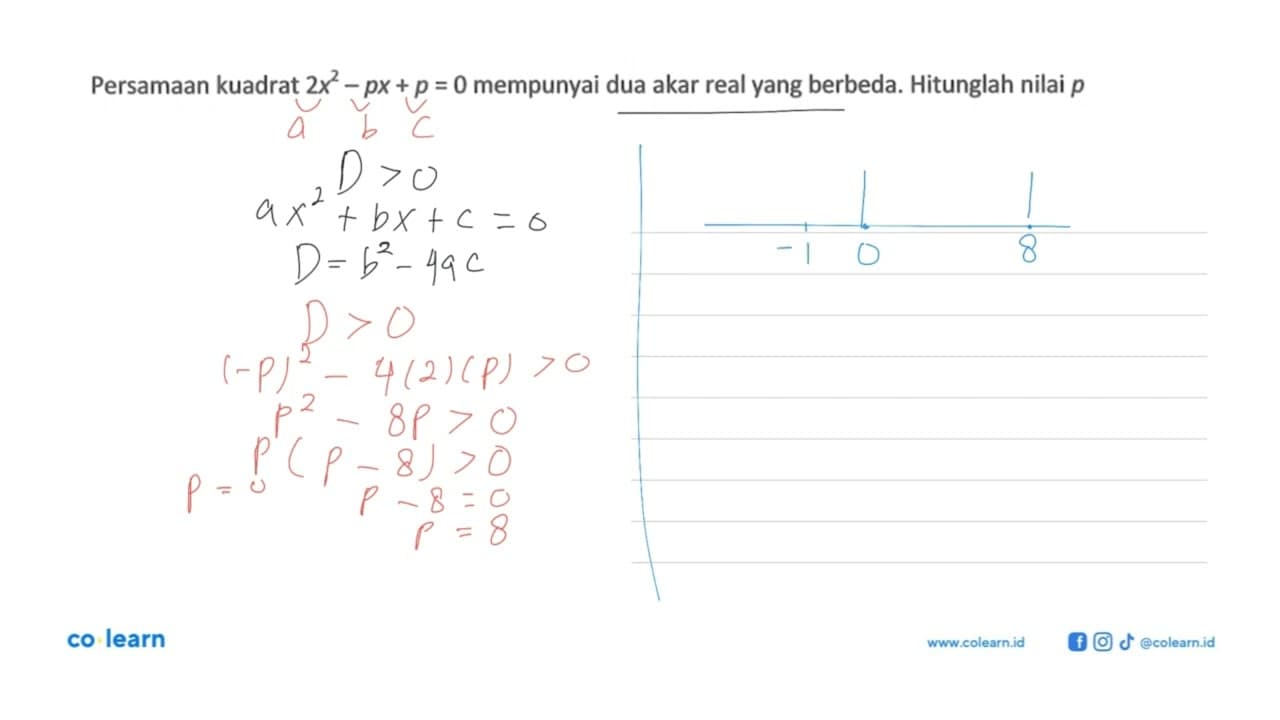 Persamaan kuadrat 2x² – px + p = 0 mempunyai dua akar real yang berbeda. Hitunglah nilai p
a b c
D > 0
ax² + bx + c = 0
D = b² - 4ac
D > 0
(-p)² - 4(2)(p) > 0
p² - 8p > 0
p(p - 8) > 0
p = 0 p - 8 = 0
p = 8
-1 0 8
co·learn
www.colearn.id @colearn.id